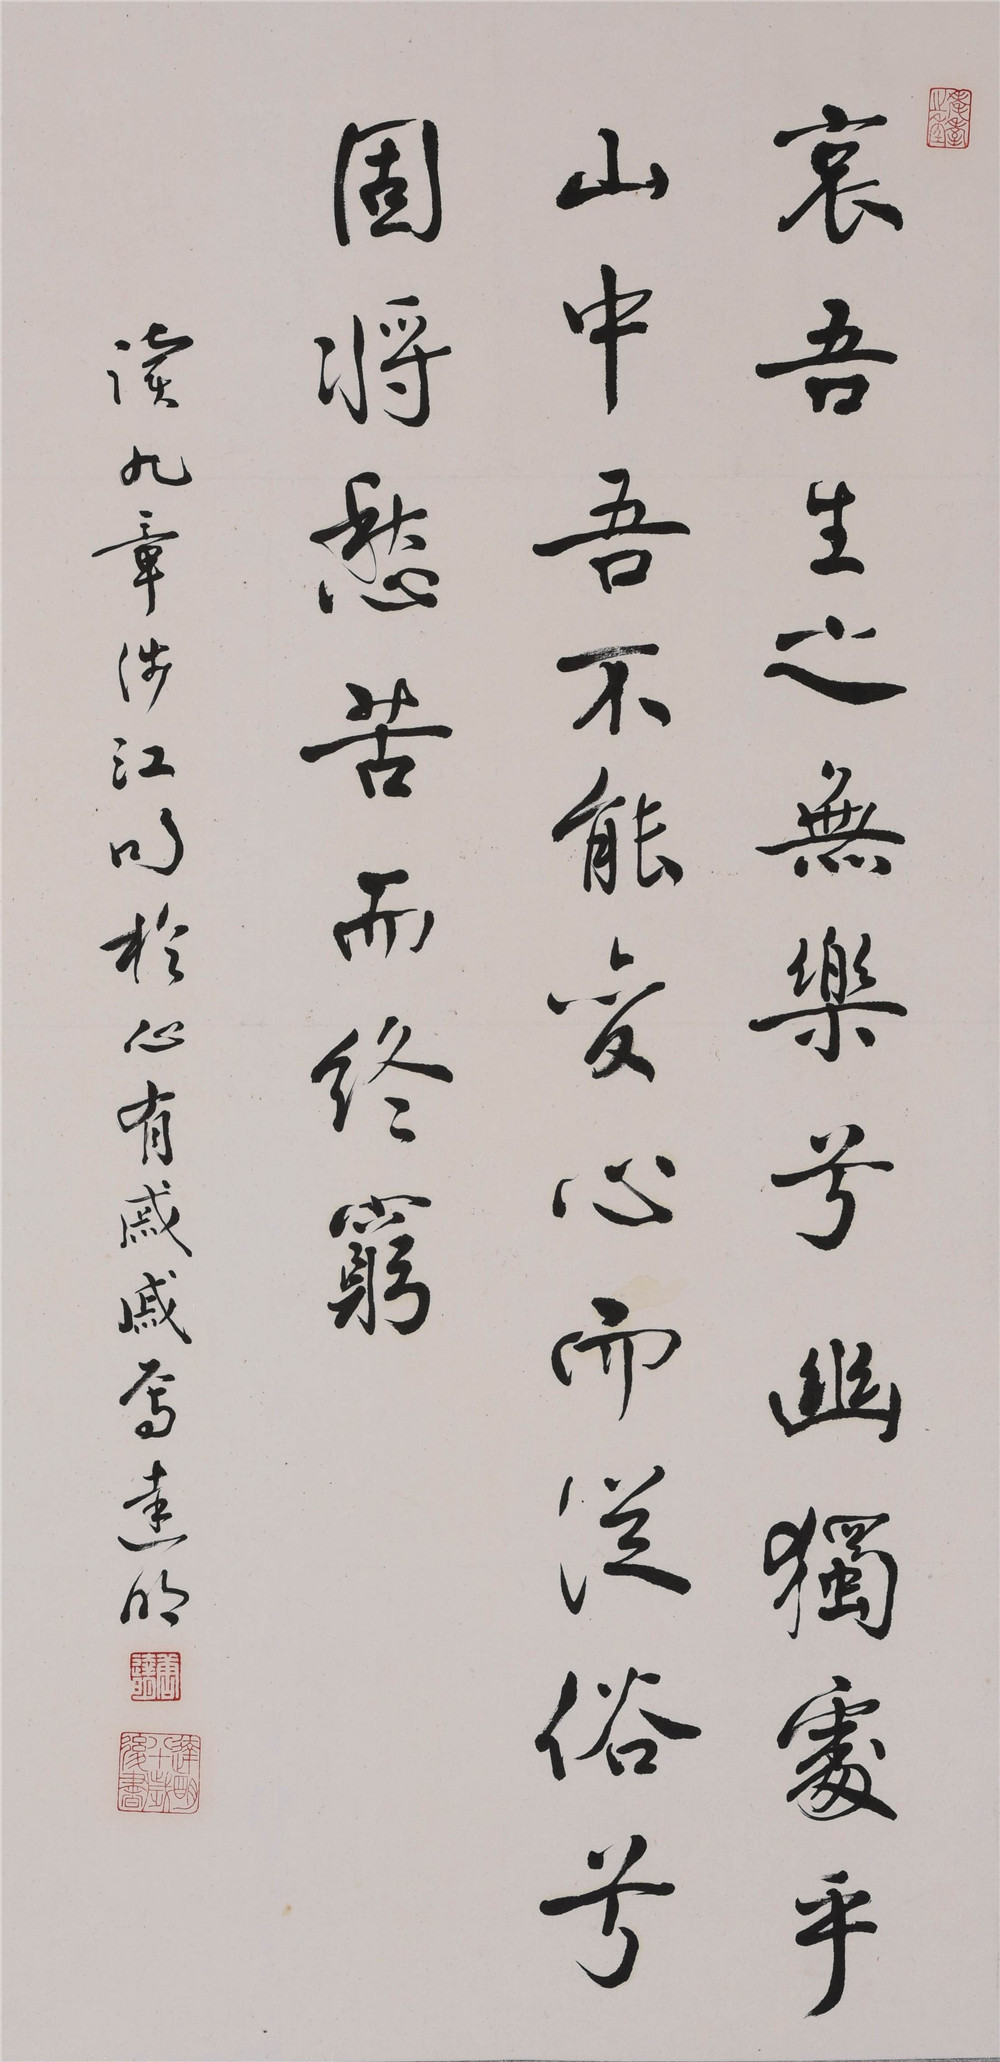 哀吾生之無樂兮幽獨處乎
山中吾不能變心而從俗兮
固將愁苦而終窮
讀九章涉江句於心有戚戚焉達明